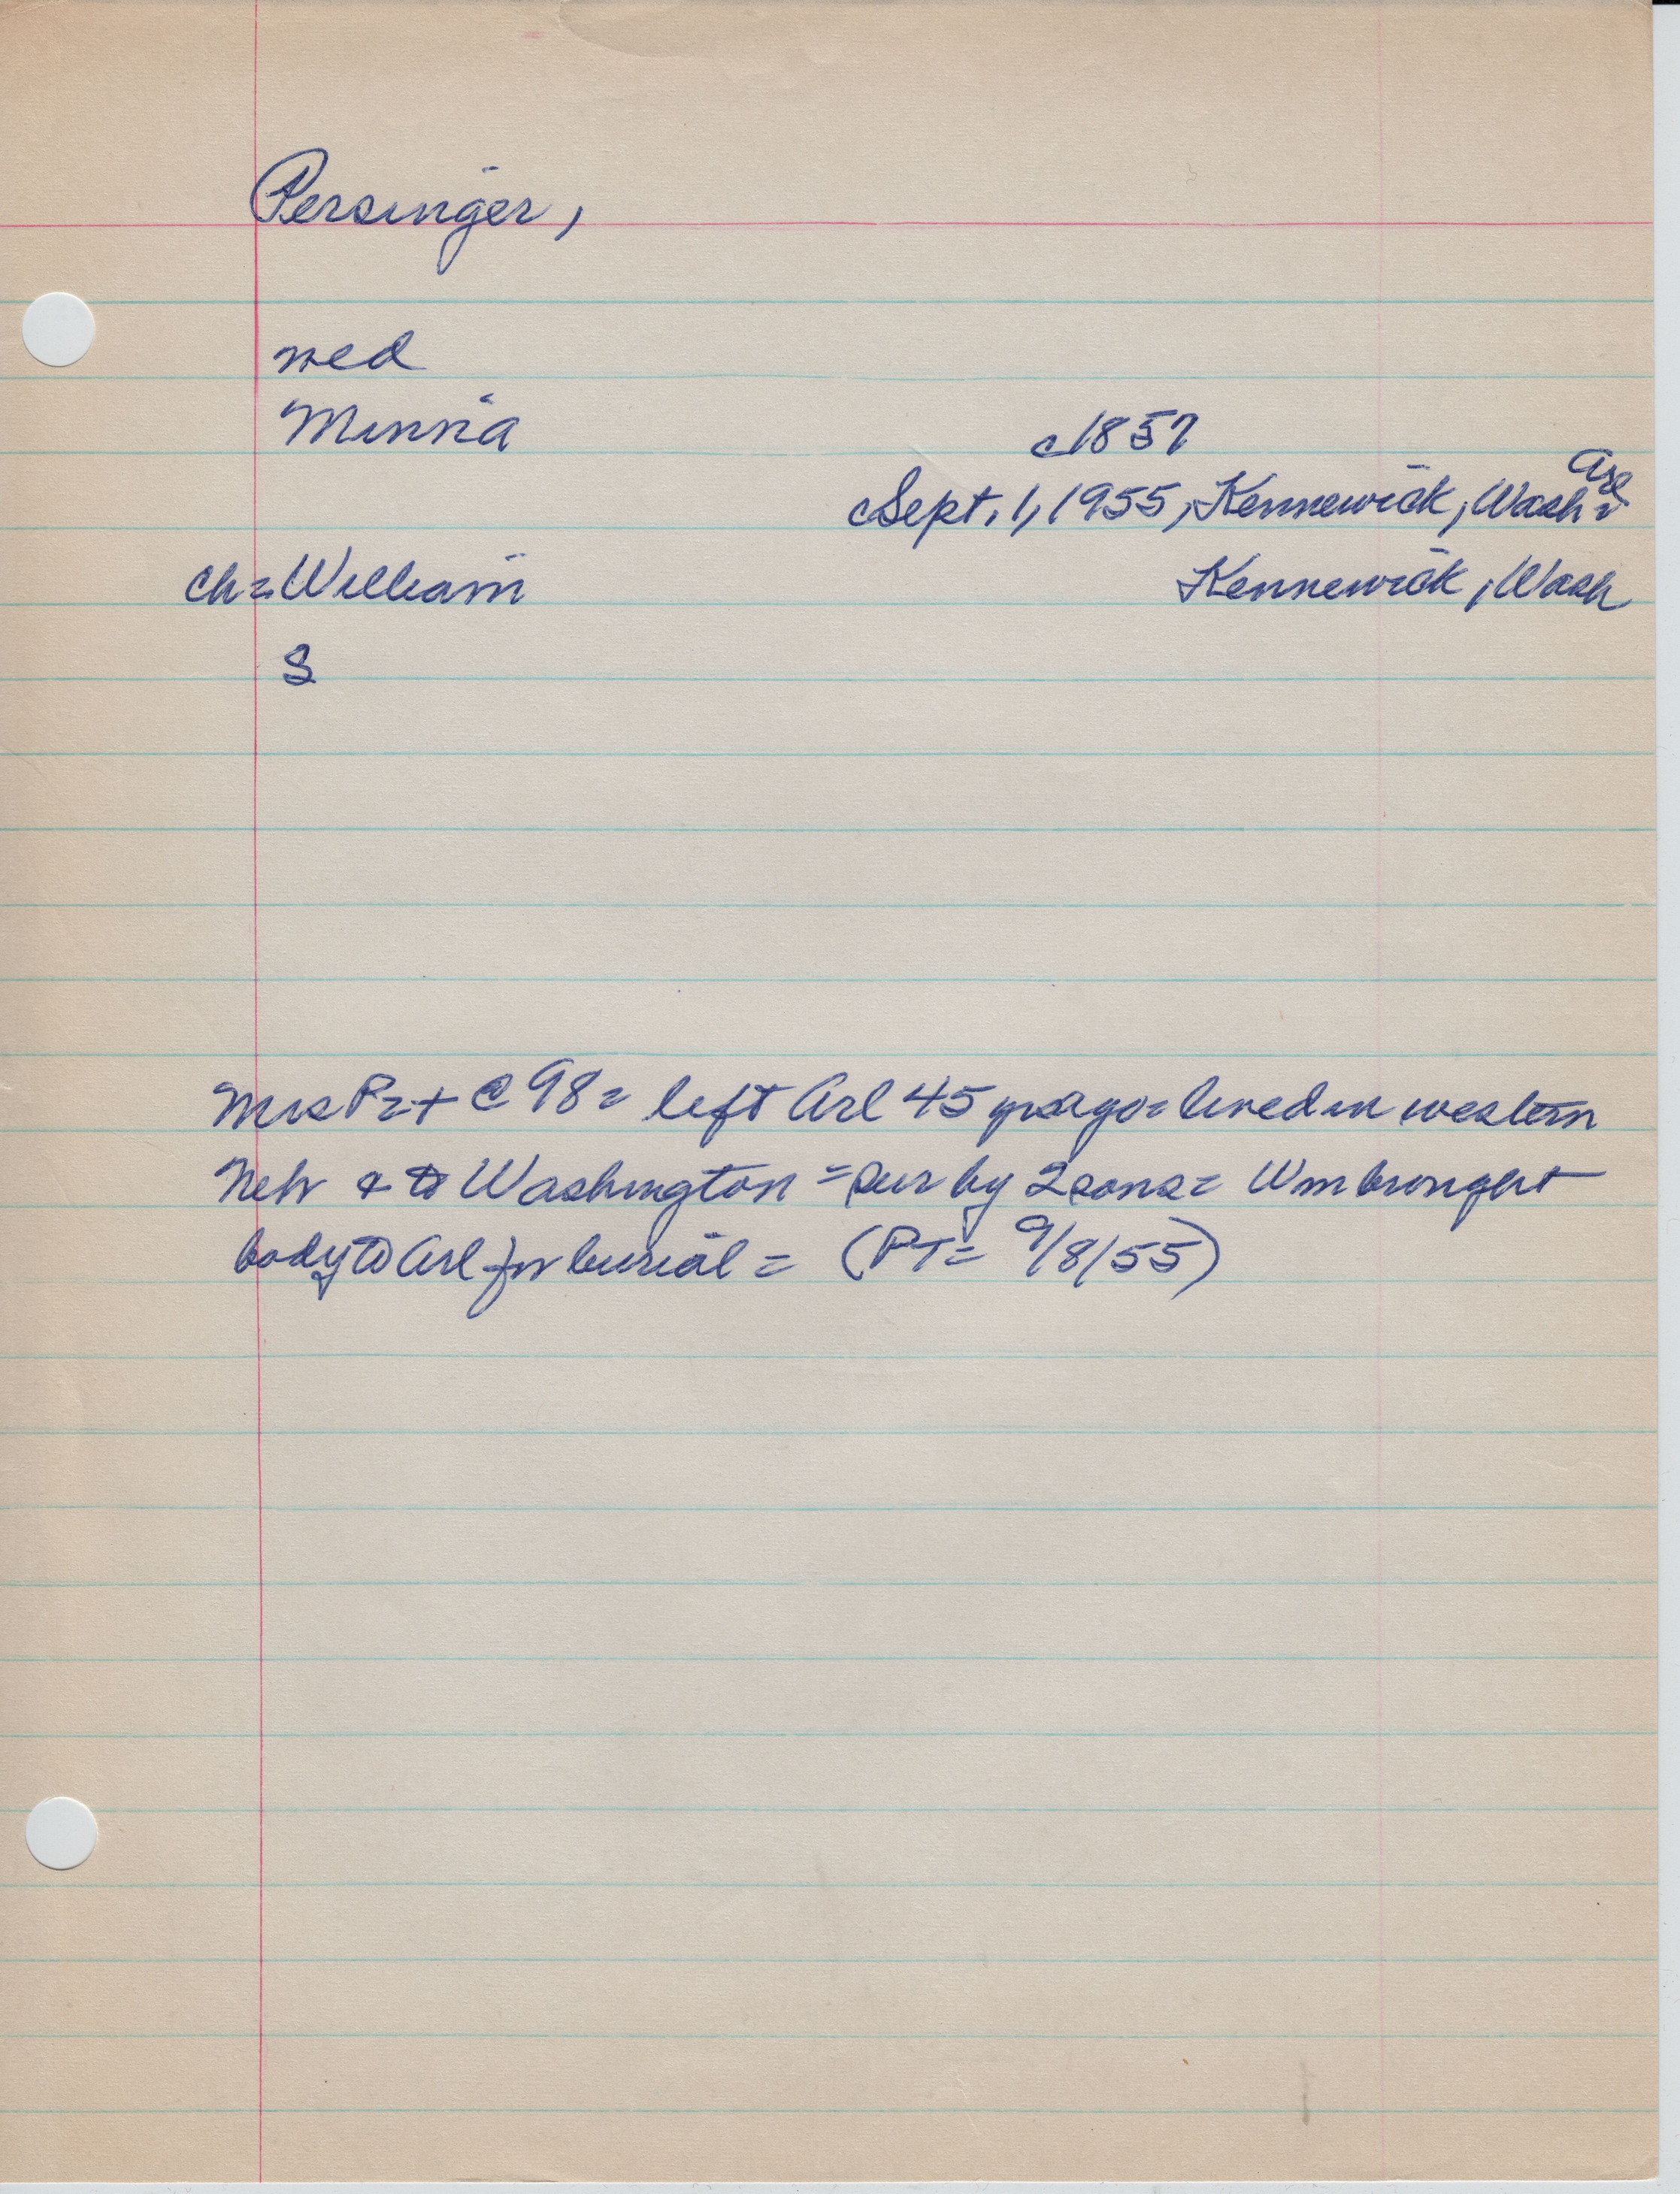 Persinger,
wed
Minnia
c1857
Arl
Sept. 1, 1955, Kennewick, Wash =
ch = William Kennewick, Wash
S
Mrs P = + @ 98 = left Arl 45 yrs ago = lived in western
Neb & to Washington = sur by 2 sons = Wm brought
body to Arl for burial = (PT = 9/8/55)